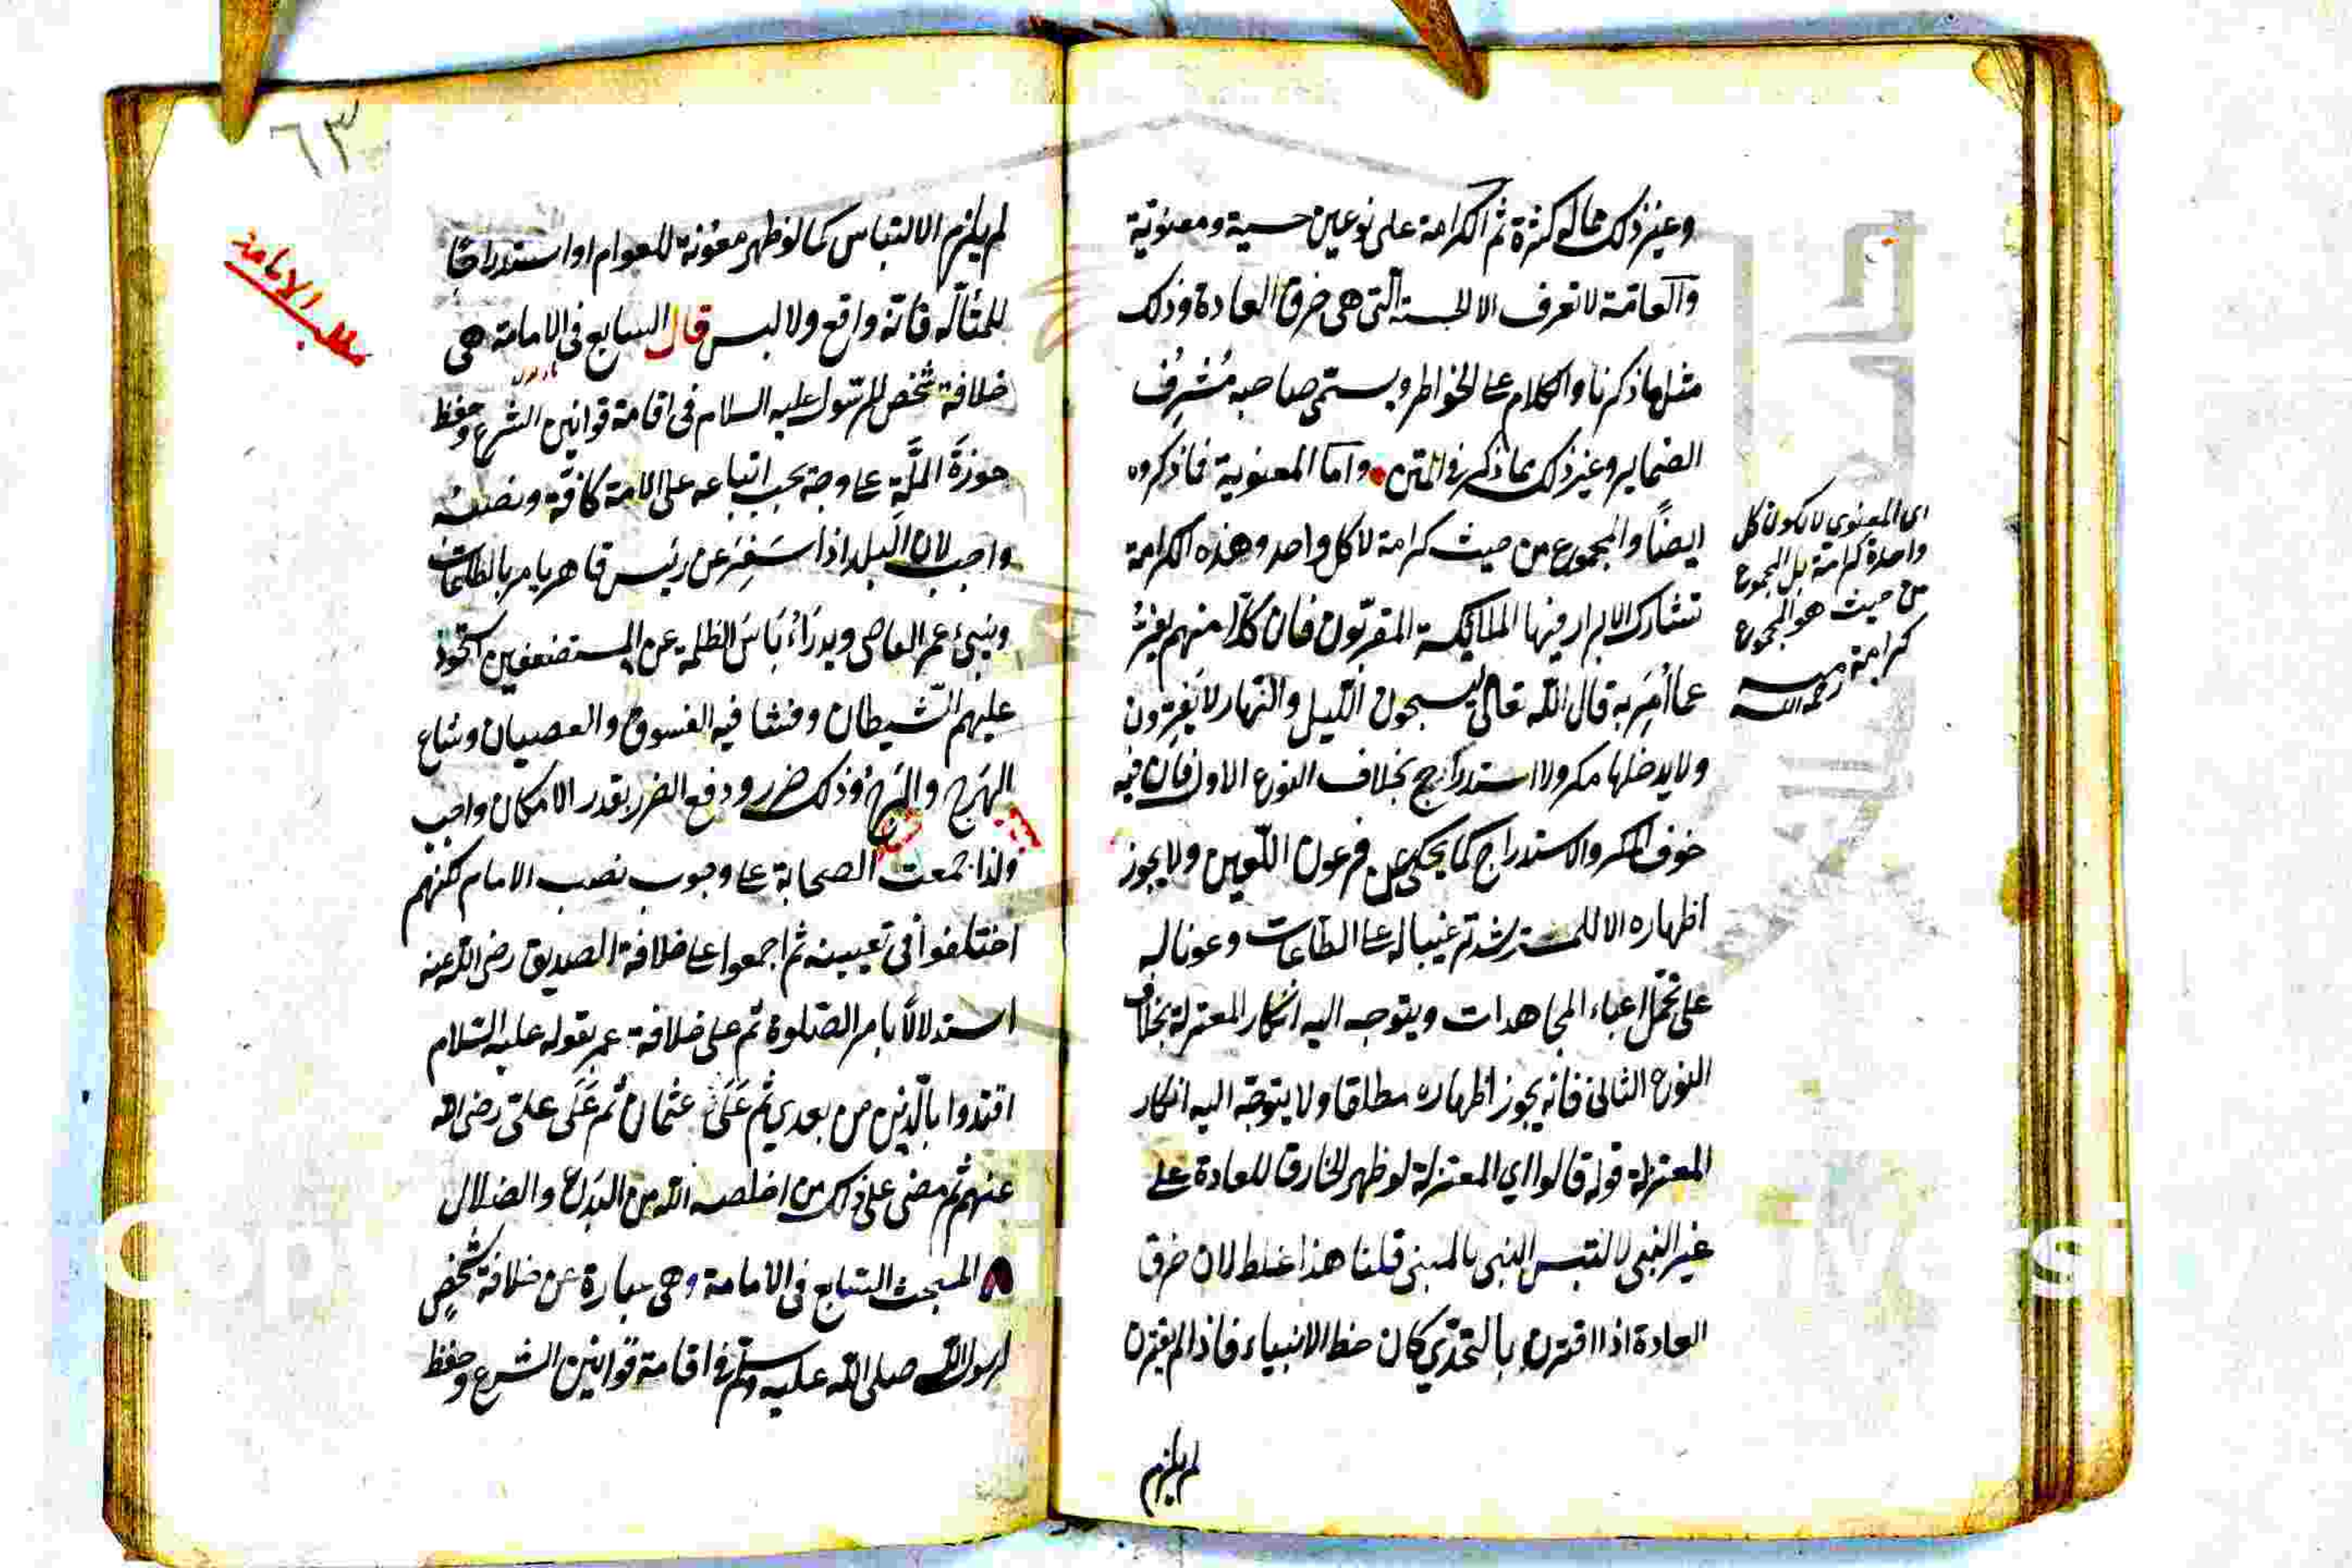 وغير ذلك مما له كثرة ثم الكرامة على نوعين حسية ومعنوية
والعامة لا تعرف الا الحسية التي هي خرق العادة وذلك
مثل ما ذكرنا والكلام على الخواطر ويسمى صاحبه مُشرِف
الضماير وغير ذلك مما ذكر في المتن واما المعنوية فما ذكروه
ايضًا والمجموع من حيث كرامة لا كل واحد وهذه الكرامة
تشارك الابرار فيها الملائكة المقربون فان كلًا منهم
عما اُمِرَ به قال الله تعالى يسبحون الليل والنهار لا يفترون
ولا يدخلها مكر ولا استدراج بخلاف النوع الاول فان فيه
خوف المكر والاستدراج كما يحكى عن فرعون اللعين ولا يجوز
اظهاره الا للمسترشد ترغيبا له على الطاعات وعونا له
على تحمل اعباء المجاهدات ويتوجه اليه انكار المعتزلة بخلاف
النوع الثاني فانه يجوز اظهاره مطلقا ولا يتوجه اليه انكار
المعتزلة قوله قالوا اي المعتزلة لو ظهر الخارق للعادة على
غير النبي لالتبس النبي بالمتنبي قلنا هذا غلط لان خرق
العادة اذا اقترن بالتحدي كان حظ الانبياء فاذا لم يقترن
لم يلزم
اى المعنوي لا يكون كل
واحدة كرامة بل المجموع
من حيث هو المجموع
كرامة
رحمه الله
٦٣
لم يلزم الالتباس كما لو ظهر معونة للعوام او استدراجًا
للمتأله فانه واقع ولا لبس قال السابع في الامامة هي
خلافة شخص للرسول عليه السلام في اقامة قوانين الشرع وحفظ
حوزة الملَّة على وجه يجب اتباعه على الامة كافة ونصبه
واجب لان البلد اذا شغر عن رئيس قاهر يامر بالطاعات
وينهى عن المعاصى ويدرأ بأس الظلمة عن المستضعفين استحوذ
عليهم الشيطان وفشا فيه الفسوق والعصيان وشاع
الهَرج والمَرج وذلك ضرر ودفع الضرر بقدر الامكان واجب
ولذا جمعت الصحابة على وجوب نصب الامام لكنهم
اختلفوا في تعيينه ثم اجمعوا على خلافة الصديق رضى الله عنه
استدلالًا بامر الصلوة ثم على خلافة عمر بقوله عليه السلام
اقتدوا بالذين من بعدي ثم على عثمان ثم على علي رضى الله
عنهم ثم مضى على ذلك من اخلصه الله من البدع والضلال
المبحث السابع في الامامة وهي عبارة عن خلافة شخص
لرسول الله صلى الله عليه وسلم في اقامة قوانين الشرع وحفظ
مطلب الامامة